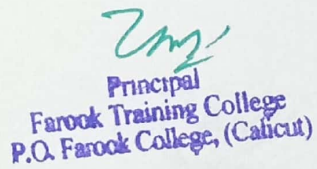 Principal
Farook Training College
P.O. Farook College, (Calicut)